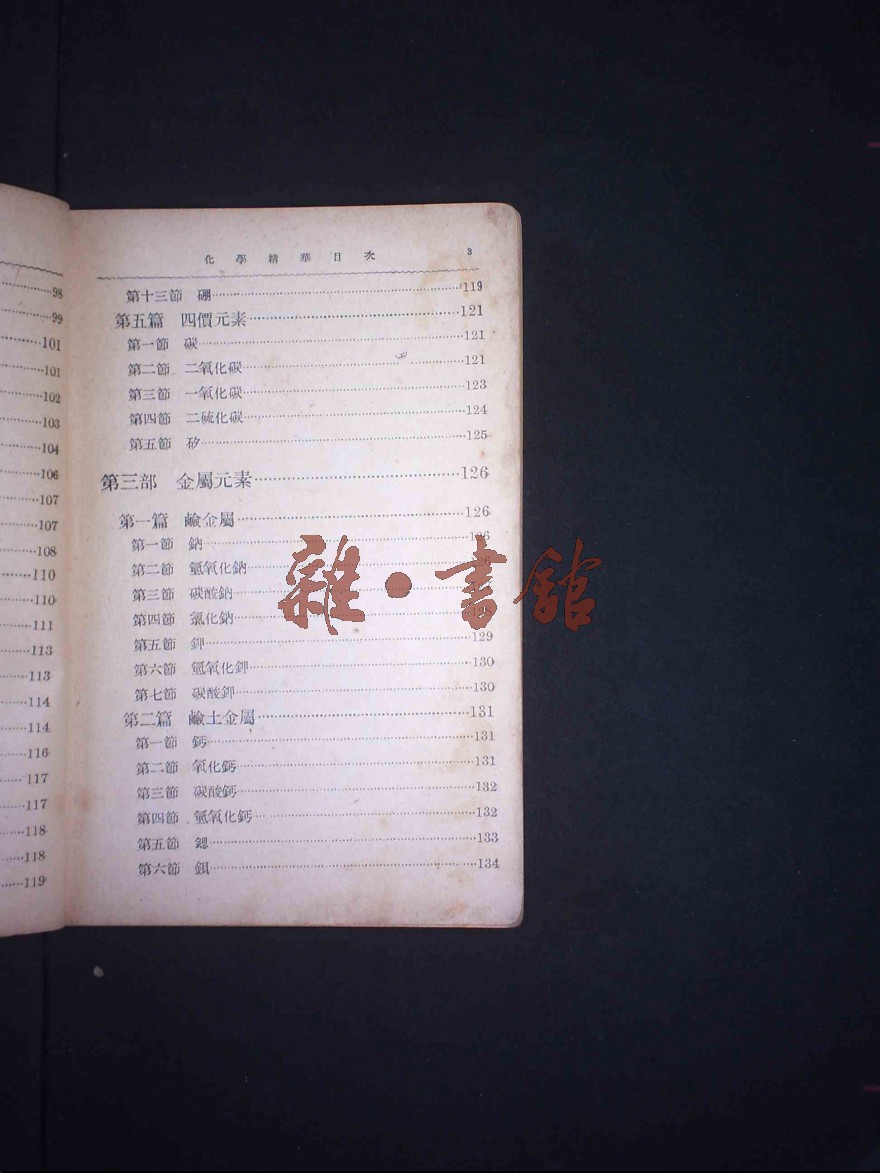 98
99
101
101
102
103
104
106
107
107
108
110
110
111
113
113
114
114
116
117
117
118
118
119
化學精華目次 3
第十三節 硼……119
第五篇 四價元素……121
第一節 碳……121
第二節 二氧化碳……121
第三節 一氧化碳……123
第四節 二硫化碳……124
第五節 矽……125
第三部 金屬元素……126
第一篇 鹼金屬……126
第一節 鈉……126
第二節 氫氧化鈉……126
第三節 碳酸鈉……
第四節 氯化鈉……
第五節 鉀……129
第六節 氫氧化鉀……130
第七節 碳酸鉀……130
第二篇 鹼土金屬……131
第一節 鈣……131
第二節 氧化鈣……131
第三節 碳酸鈣……132
第四節 氫氧化鈣……132
第五節 鍶……133
第六節 鋇……134
雜·書館